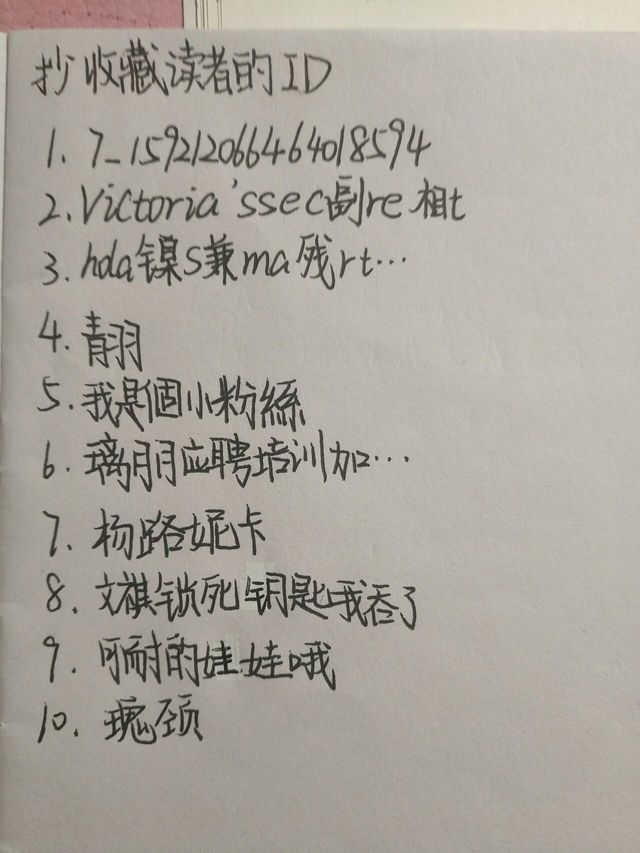 抄收藏读者的ID
1. 7_159212066464018594
2. Victoria'ssec副re相t
3. hda镍S兼ma残rt…
4. 青羽
5. 我是個小粉絲
6. 璃月月应聘培训加…
7. 杨路妮卡
8. 文祺锁死钥匙我吞了
9. 可耐的娃娃哦
10. 瑰颈